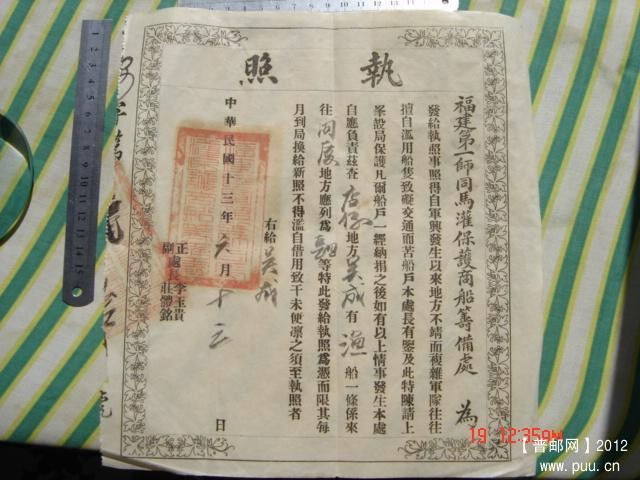 執照
福建第一師同馬灌保護商船籌備處 為
發給執照事照得自軍興發生以來地方不靖而複雜軍隊往往
擅自濫用船隻致礙交通而苦船戶本處長有鑒及此特陳請上
峯設局保護凡爾船戶一經納捐之後如有以上情事發生本處
自應負責茲查 地方吳成有漁船一條係來
往同廈地方應列為 等特此發給執照為憑而限其每
月到局換給新照不得濫自借用致干未便凜之須至執照者
右給吳成
正處長李玉貴
副處長莊體銘
中華民國十三年六月十三日
19 12:35PM
【普邮网】2012
www.puu.cn